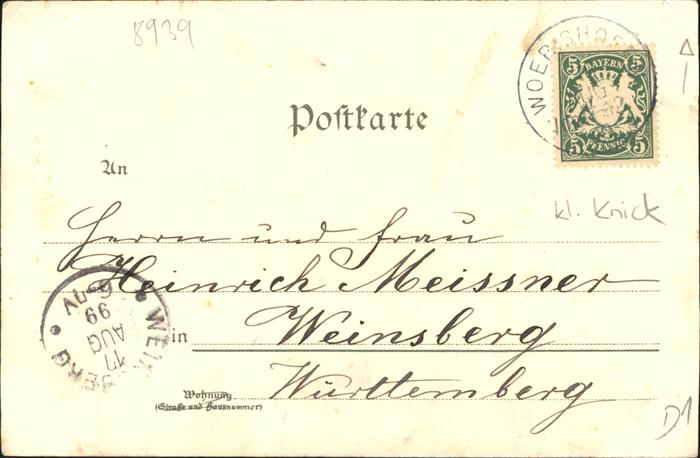 8939
WOERISHOF
5 BAYERN 5
5 PFENNIG 5
Postkarte
An
kl. Knick
Herrn und Frau
Heinrich Meissner
in Weinsberg
Württemberg
WEINSBERG
17 AUG 99
6-7 NV
Wohnung
(Straße und Hausnummer)
D1